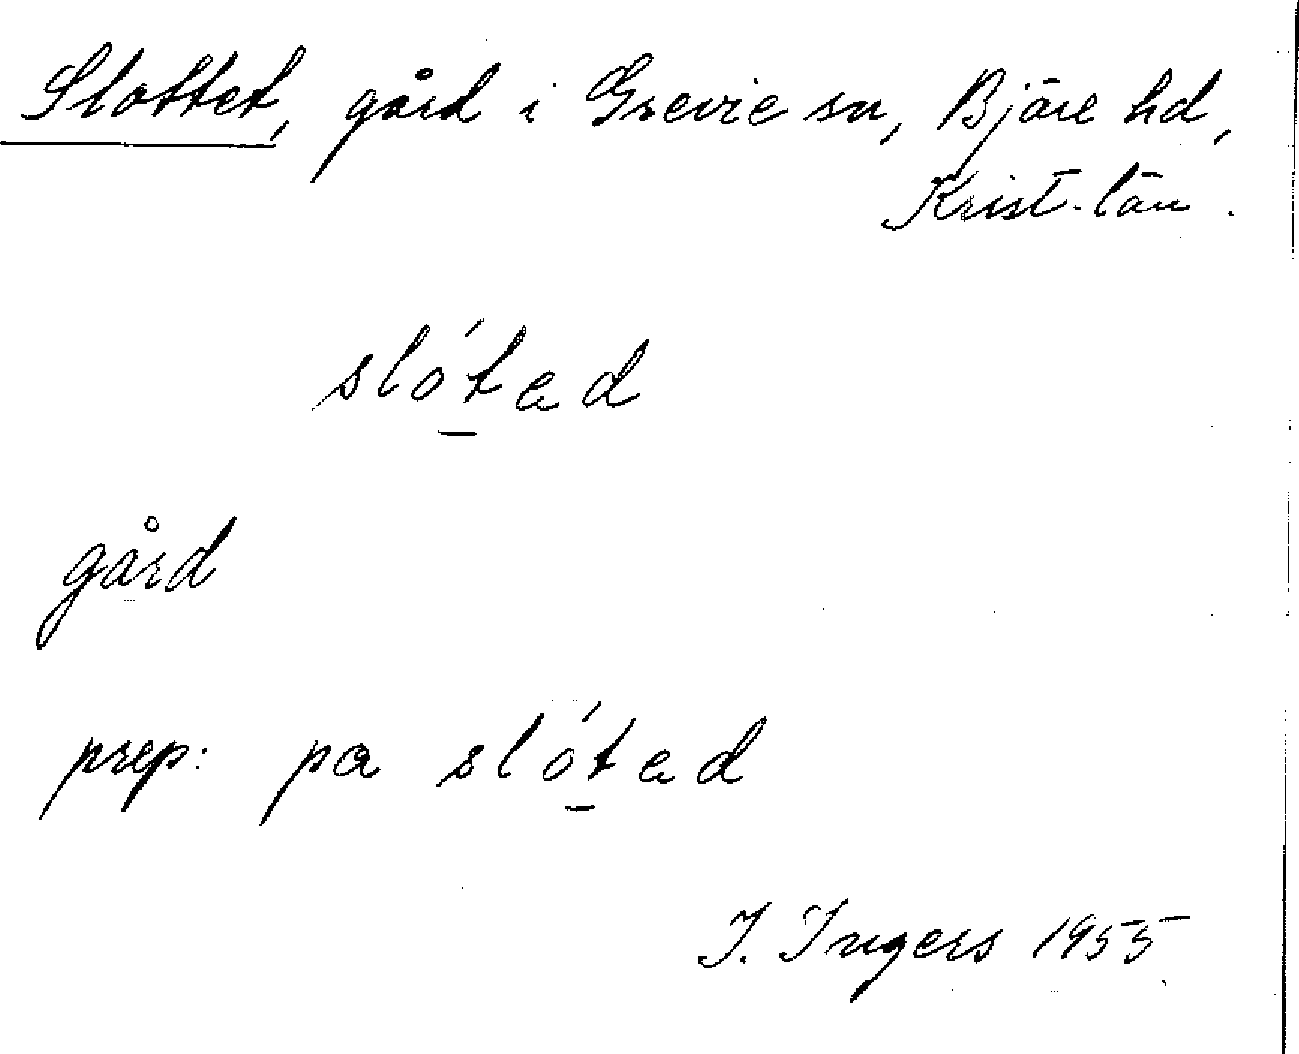 Slottet, gård i Grevie sn, Bjäre hd,
Krist. län.
slótad
gård
prep: pa slótad
I. Ingers 1955